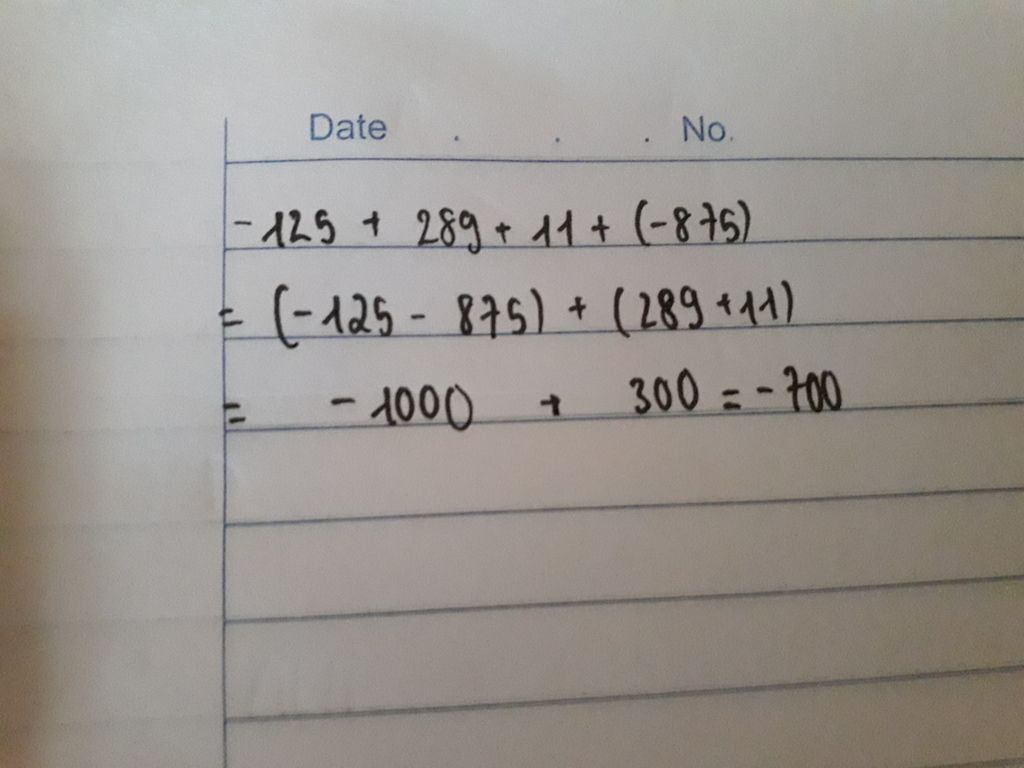 Date . . . No.
-125 + 289 + 11 + (-875)
= (-125 - 875) + (289 + 11)
= -1000 + 300 = -700